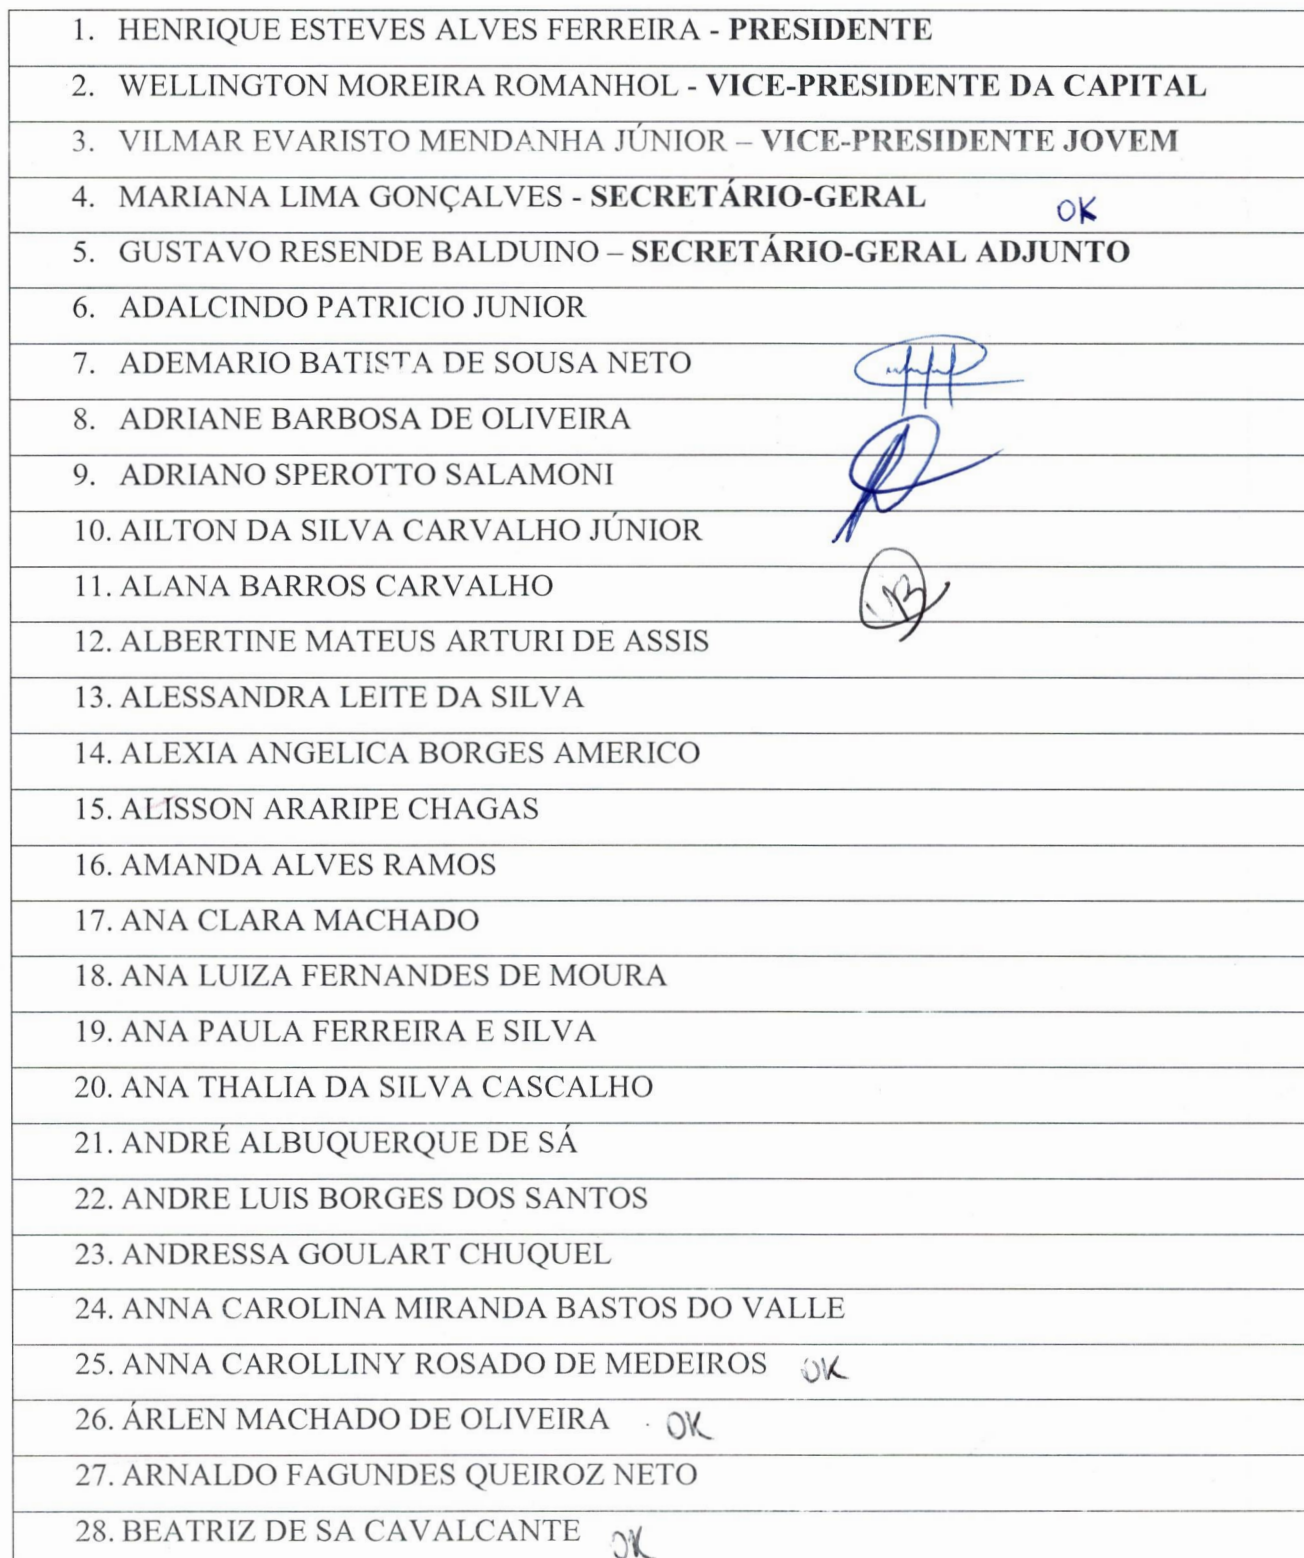 1. HENRIQUE ESTEVES ALVES FERREIRA - PRESIDENTE
2. WELLINGTON MOREIRA ROMANHOL - VICE-PRESIDENTE DA CAPITAL
3. VILMAR EVARISTO MENDANHA JÚNIOR – VICE-PRESIDENTE JOVEM
4. MARIANA LIMA GONÇALVES - SECRETÁRIO-GERAL OK
5. GUSTAVO RESENDE BALDUINO – SECRETÁRIO-GERAL ADJUNTO
6. ADALCINDO PATRICIO JUNIOR
7. ADEMARIO BATISTA DE SOUSA NETO
8. ADRIANE BARBOSA DE OLIVEIRA
9. ADRIANO SPEROTTO SALAMONI
10. AILTON DA SILVA CARVALHO JÚNIOR
11. ALANA BARROS CARVALHO
12. ALBERTINE MATEUS ARTURI DE ASSIS
13. ALESSANDRA LEITE DA SILVA
14. ALEXIA ANGELICA BORGES AMERICO
15. ALISSON ARARIPE CHAGAS
16. AMANDA ALVES RAMOS
17. ANA CLARA MACHADO
18. ANA LUIZA FERNANDES DE MOURA
19. ANA PAULA FERREIRA E SILVA
20. ANA THALIA DA SILVA CASCALHO
21. ANDRÉ ALBUQUERQUE DE SÁ
22. ANDRE LUIS BORGES DOS SANTOS
23. ANDRESSA GOULART CHUQUEL
24. ANNA CAROLINA MIRANDA BASTOS DO VALLE
25. ANNA CAROLLINY ROSADO DE MEDEIROS OK
26. ÁRLEN MACHADO DE OLIVEIRA OK
27. ARNALDO FAGUNDES QUEIROZ NETO
28. BEATRIZ DE SA CAVALCANTE OK